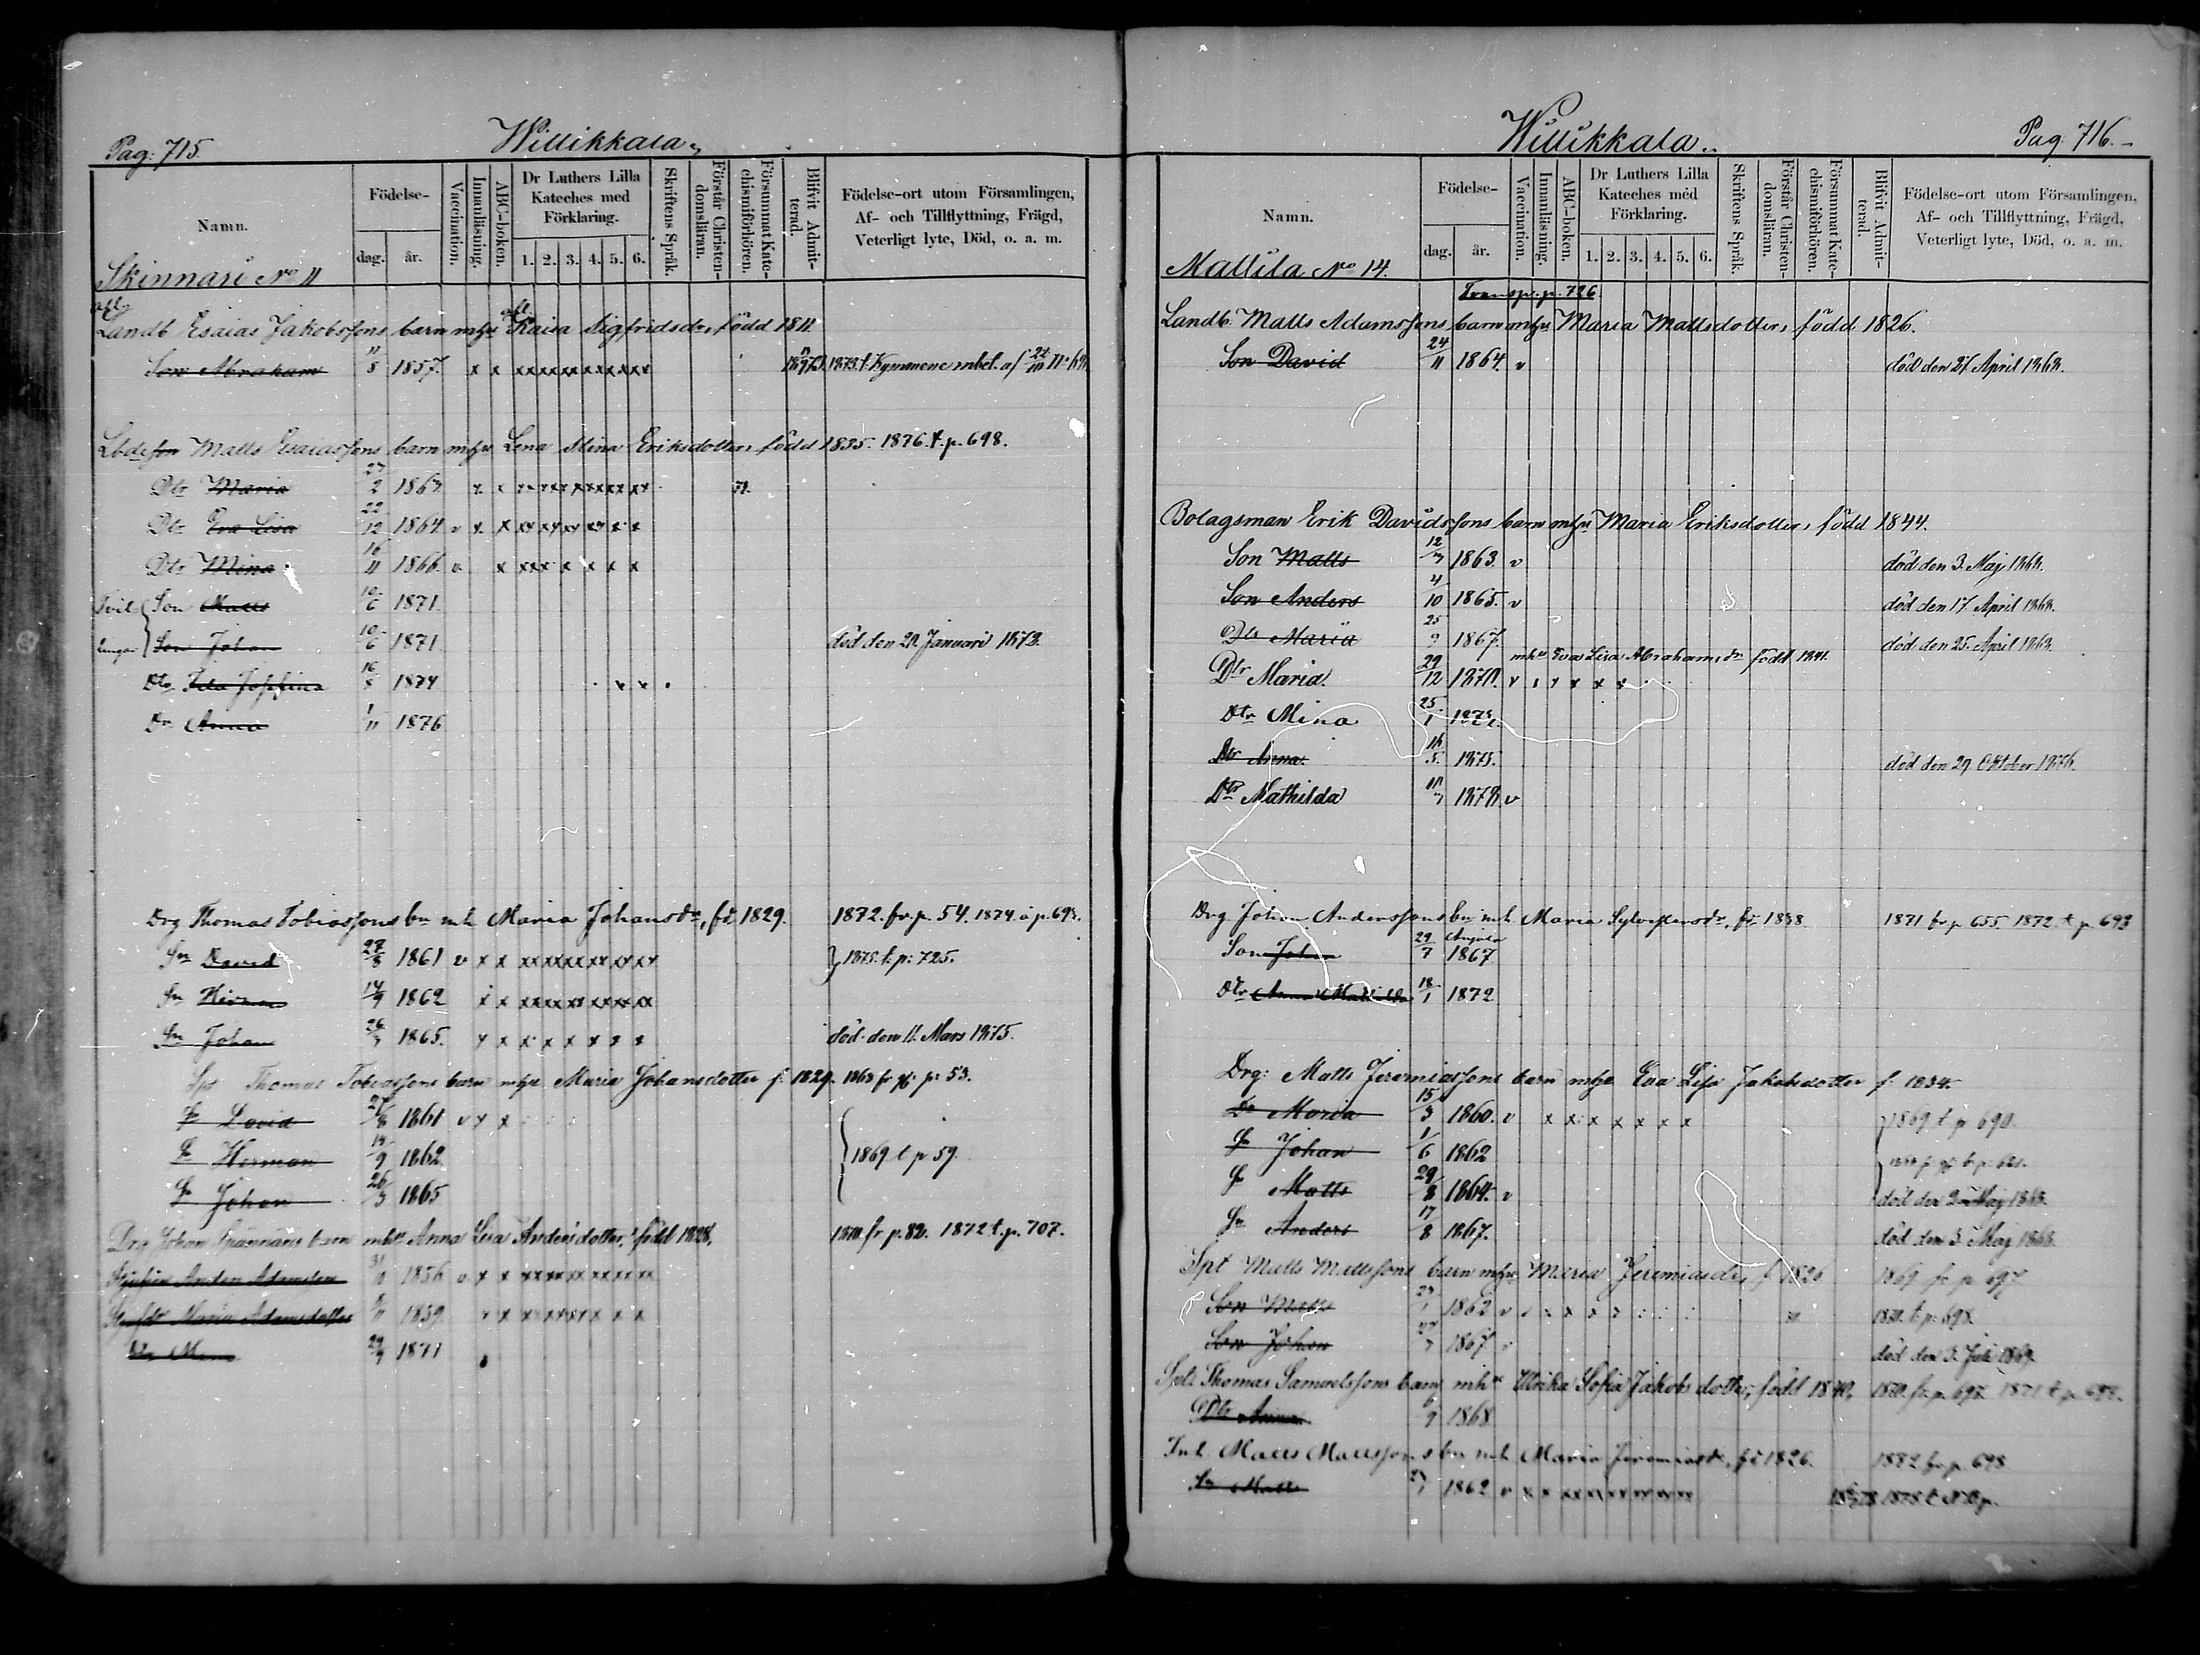 Pag: 715.
Willikkala.
Namn.
Födelse-
dag.
år.
Vaccination.
Innanläsning.
ABC-boken.
Dr Luthers Lilla Kateches med Förklaring.
1. 2. 3. 4. 5. 6.
Skriftens Språk.
Förstår Christen-domsläran.
Försummat Kate-chismiförhören.
Blifvit Admit-terad.
Födelse-ort utom Församlingen, Af- och Tillflyttning, Frägd, Veterligt lyte, Död, o. a. m.
Skinnari No 11
Landb Esaias Jakobssons barn mhu Kaisa Sigfridsdr, född 1811.
Son Abraham 11/8 1857. x x xx xx xx xx xx xx 1873 t. Kymmene
Lbdeson Matts Esaiassons barn mhu Lena Stina Eriksdotter, född 1835. 1876. t. p. 698.
Dtr Maria 2 1863
Dtr Eva Lisa 22/12 1864 v x x xx xx xx xx x x
Dtr Mina 16/11 1866 v x xxx x x x x
Son Matts 10/6 1871.
Son Johan 10/6 1871. död den 20. Januari 1873.
Dtr Ida Josefina 16/8 1874
Dr Anna 1/11 1876
Drg Thomas Tobiassons bn mh Maria Johansdr, fd. 1829. 1872. fr. p. 54.
Sn David 27/8 1861 v x x xx xx xx xx xx xx 1875. t. p: 725.
Sn Herman 14/9 1862 x x xx xx xx xx xx xx
Sn Johan 26/3 1865. x x x x x x x x död den 11. Mars 1875.
Thomas Tobiassons barn mhu Maria Johansdotter f. 1829. p: 53.
Sn David 27/8 1861 v x x
Sn Herman 14/9 1862 1869 t p 59.
Sn Johan 26/3 1865
Drg Johan barn mhu Anna Lisa Andersdotter, född 1828. fr. p. 82. 1872 t. p. 707.
Anders Adamson 1856 v x x xx xx xx xx xx xx
Maria Adamsdotter 1859.
Dr 1871
Pag. 716.
Willikkala.
Namn.
Födelse-
dag.
år.
Vaccination.
Innanläsning.
ABC-boken.
Dr Luthers Lilla Kateches med Förklaring.
1. 2. 3. 4. 5. 6.
Skriftens Språk.
Förstår Christen-domsläran.
Försummat Kate-chismiförhören.
Blifvit Admit-terad.
Födelse-ort utom Församlingen, Af- och Tillflyttning, Frägd, Veterligt lyte, Död, o. a. m.
Mattila No 14.
Transp. p. 726
Landb. Matts Adamssons barn mhu Maria Mattsdotter, född 1826.
Son David 24/11 1864. v död den 27. April 1868.
Bolagsman Erik Davidssons barn mhu Maria Eriksdotter, född 1844.
Son Matts 1863. v död den 3. Maj 1868.
Son Anders 4/10 1865. v död den 17. April 1868.
Dtr Maria 25/9 1867. död den 25. April 1868.
mhu Eva Lisa Abrahamsdr född 1841.
Dtr Maria. 29/12 1870.
Dtr Mina 25/1
Dtr Anna. 1875. död den 29. Oktober 1876.
Dtr Mathilda 1878. v
Drg. Johan Anderssons bn mh Maria Sylvestersdr, fd. 1838 1871 fr p 655. 1872. t p. 693
Anjala
Son Johan 29/7 1867
Dtr Anna Matilda 18/1 1872
Drg: Matts Jeremiassons barn mhu Eva Lisa Jakobsdotter f. 1834.
Dr Maria 15/3 1860. v x x x x x x x 1869. t p 690.
Sn Johan 1/6 1862
Sn Matts 29/8 1864. v död den 2. Maj 1868.
Sn Anders 17/8 1867. död den 3. Maj 1868.
Spt Matts Mattssons barn mhu Maria Jeremiasdr, f. 1826 1869 fr p 697
Son Matts 1862 v t. p: 698.
Son Johan 1867 v
Thomas Samuelssons barn mhu Ulrika Sofia Jakobsdotter, född 1840, fr. p. 697. 1871 t. p. 692.
Dtr Anna 6/9 1868.
Inh. Matts Mattssons bn mh Maria Jeremiasdr, fd 1826. 1872 fr p. 698
Sn Matts 1862 v x x xx xx xx xx xx xx